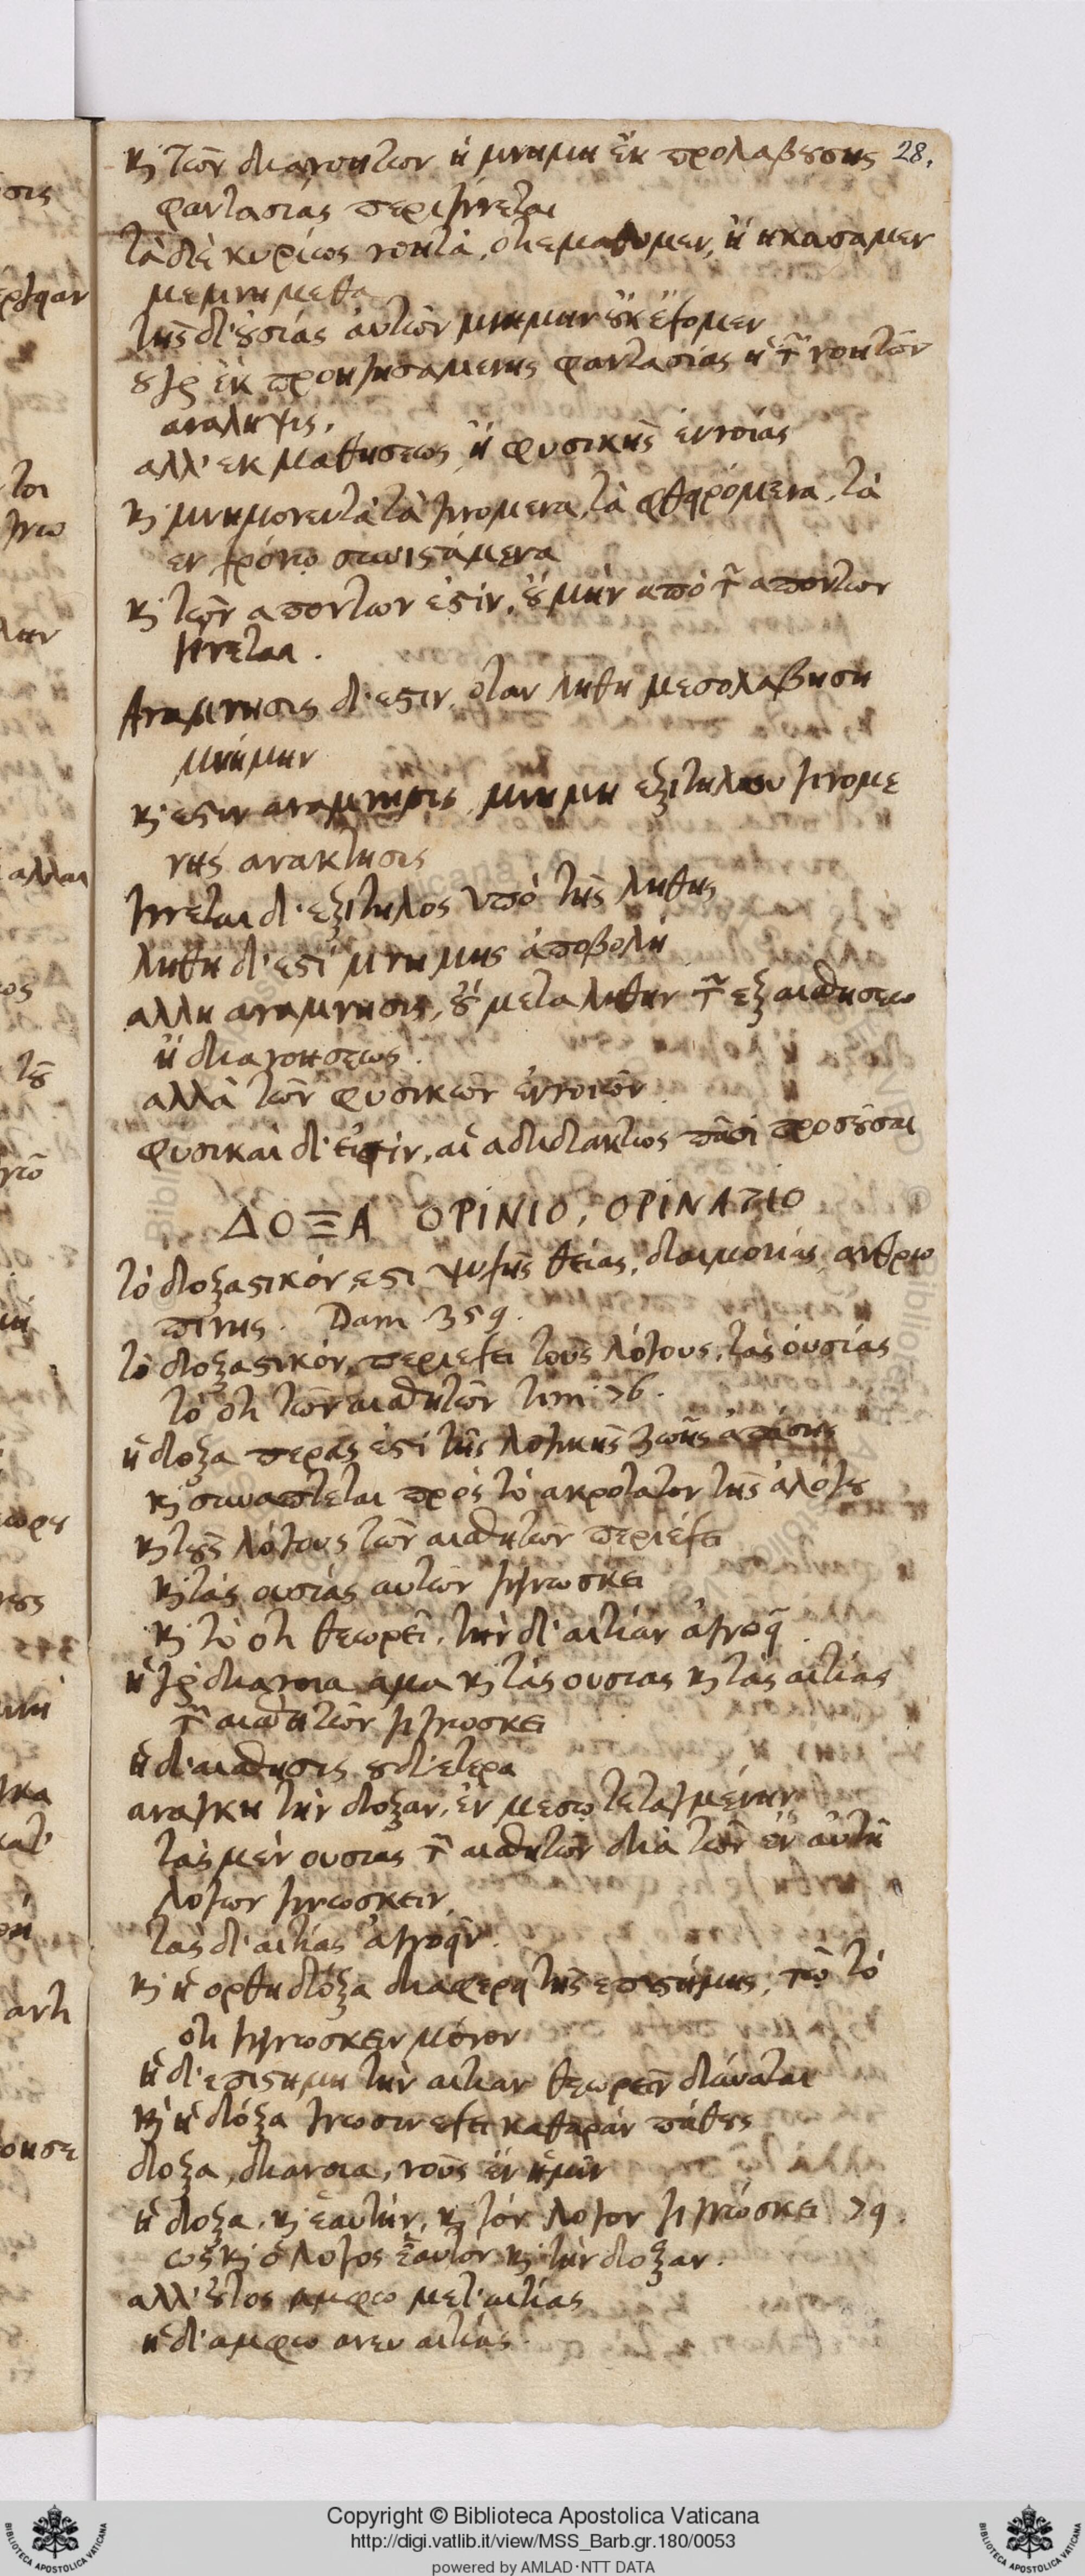 κ̀ τῶν διανοητων ἡ μνημη ἐκ προλαβουσης 28.
φαντασίας περιγίνεται
τὰ δὲ κυρίως νοητὰ, ὅτι εμαθομεν, ἢ ηκουσαμεν
μεμνημεθα
τῆς δ' ουσίας ἀυτῶν μνημην ουκ ἔχομεν
ου γὰρ ἐκ προηγησαμενης φαντασίας ἡ τῶν νοητῶν
αναληψις.
αλλ' εκ μαθησεως ἢ φυσικῆς ἐννοίας
κ̀ μνημονευτὰ τὰ γινομενα, τὰ φθειρόμενα, τὰ
εν χρόνῳ συνιστάμενα
κ̀ τῶν αποντων ἐστίν, ου μὴν απὸ τῶν αποντων
γίνεται.
Αναμνησις δ' εστιν, ὅταν ληθη μεσολαβηση
μνήμην
κ̀ εστιν αναμνησις, μνημη εξιτηλου γινομε
νης ανακτησις
γίνεται δ' εξίτηλος ὑπὸ τῆς ληθης
ληθη δ' εστὶ μνημης ἀποβολὴ
αλλη αναμνησις, ου μετα ληθην τῶν εξ αισθησεω
ἢ διανοησεως.
αλλὰ τῶν φυσικῶν ἐννοιῶν.
φυσικαι δ' εἰσίν, αἱ αδιδακτως πᾶσι προσουσαι
ΔΟΞΑ OPINIO, OPINATIO
τὸ δοξαστικόν, εστι ψυχῆς θείας, δαιμονίας, ανθρω
πινης. Dam. 359.
τὸ δοξαστικόν, περιεχει τοὺς λόγους, τὰς ὀυσίας
τὸ ὅτι τῶν αισθητῶν tim. 76.
ἡ δοξα περας ἐστὶ τῆς λογικῆς ζωῆς ἁπάσης
κ̀ συναπτεται πρὸς τὸ ακροτατον τῆς ἀλόγου
κ̀ τοὺς λόγους τῶν αισθητῶν περιέχει
κ̀ τὰς ουσίας αυτῶν γιγνωσκει
κ̀ τὸ ὅτι θεωρεῖ, τὴν δ' αιτίαν ἀγνοεῖ.
ἡ γὰρ διανοια αμα κ̀ τὰς ουσιας κ̀ τὰς αιτίας
τῶν αισθητῶν γιγνωσκει
ἡ δ' αισθησις ουδ' ετερα
αναγκη τὴν δοξαν, ἐν μεσῳ τεταγμένην
τὰς μὲν ουσιας τῶν αισθητῶν διὰ τῶν ἐν αὐτῆ
λογων γινωσκειν,
τὰς δ' αιτίας ἀγνοεῖν.
κ̀ ἡ ορθη δόξα διαφερει τῆς επιστήμης, τῷ τὸ
ὅτι γιγνωσκειν μόνον
ἡ δ' επιστημη τὴν αιτιαν θεωρεῖν δύναται
κ̀ ἡ δόξα γνωσιν εχει καθαρὰν πάθους
δοξα, διανοια, νοῦς ἐν ἡμῖν
ἡ δοξα, κ̀ ἑαυτὴν, κ̀ τὸν λογον γιγνώσκει 79.
ως κ̀ ὁ λογος ἑαυτον κ̀ τὴν δοξαν.
αλλ' ουτος αμφω μετ' αιτίας
ἡ δ' αμφω ανευ αιτίας.
Copyright © Biblioteca Apostolica Vaticana
http://digi.vatlib.it/view/MSS_Barb.gr.180/0053
powered by AMLAD·NTT DATA